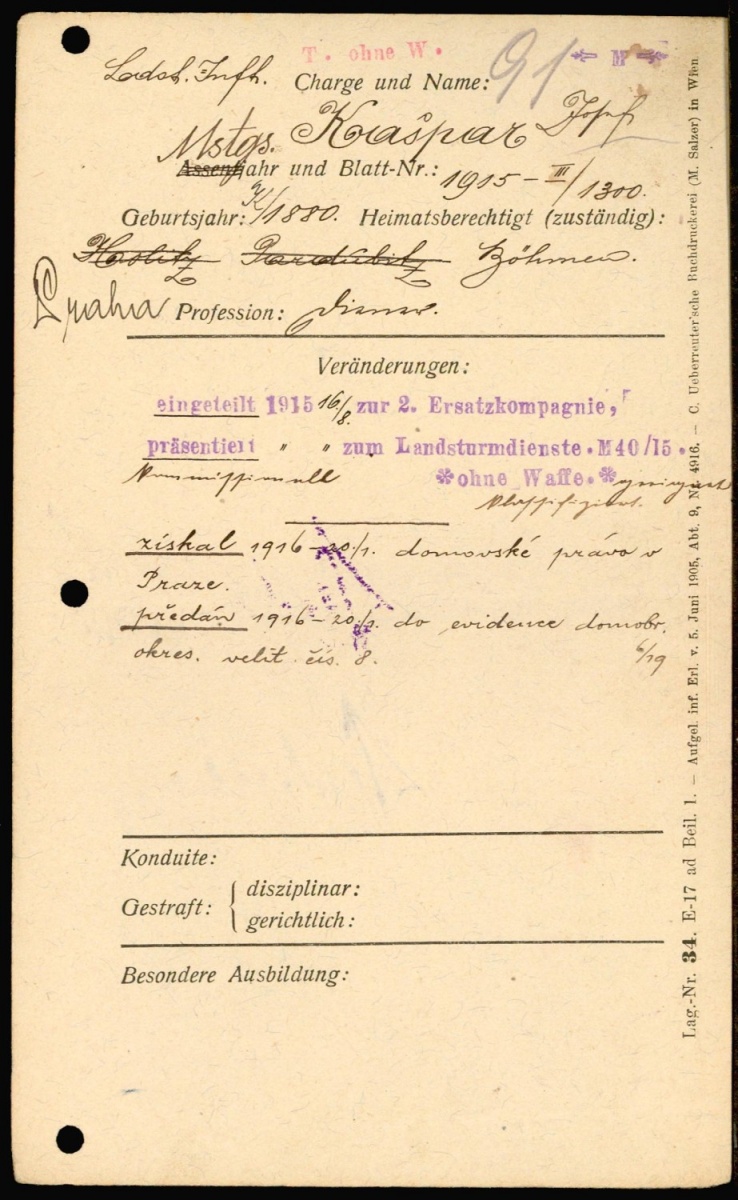 T. ohne W.
91
M
Ldst. Infh. Charge und Name:
Kašpar Josef
Mstgs.
Assentjahr und Blatt-Nr.: 1915–III/1300.
Geburtsjahr: K/1880. Heimatsberechtigt (zuständig):
Holitz Pardubitz Böhmen.
Praha Profession: Diener.
Veränderungen:
eingeteilt 1915 16/8. zur 2. Ersatzkompagnie,
präsentiert " " zum Landsturmdienste. M40/15.
kommissionell *ohne Waffe.* geeignet
klassifiziert.
získal 1916–20./1. domovské právo v
Praze.
předán 1916–20./1. do evidence domobr.
okres. velit. čís. 8. 6/19
Konduite:
Gestraft: { disziplinar:
gerichtlich:
Besondere Ausbildung:
Lag.-Nr. 34. E-17 ad Beil. 1. — Aufgel. inf. Erl. v. 5. Juni 1905, Abt. 9, Nr. 4916. — C. Ueberreuter'sche Buchdruckerei (M. Salzer) in Wien.